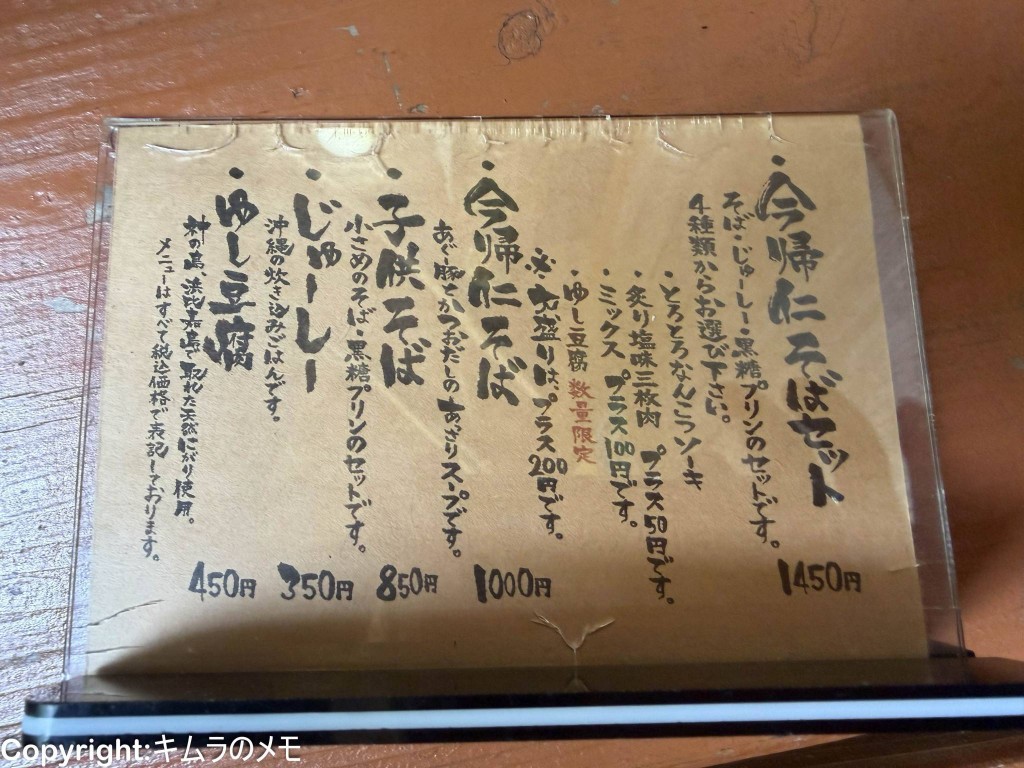 ・今帰仁そばセット
そば・じゅーしー・黒糖プリンのセットです。
4種類からお選び下さい。
・とろとろなんこつソーキ
・炙り塩味三枚肉 プラス50円です。
・ミックス プラス100円です。
・ゆし豆腐 数量限定
※大盛りは、プラス200円です。
1450円
・今帰仁そば
あぐー豚とかつおだしのあっさりスープです。
1000円
・子供そば
小さめのそば・黒糖プリンのセットです。
850円
・じゅーしー
沖縄の炊き込みごはんです。
350円
・ゆし豆腐
神の島、浜比嘉島で取れた天然にがり使用。
450円
メニューはすべて税込価格で表記しております。
Copyright:キムラのメモ